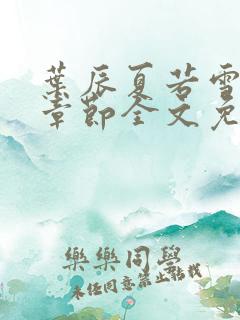 葉辰夏若雪
章節全文免
樂樂同學
未经同意禁止转载